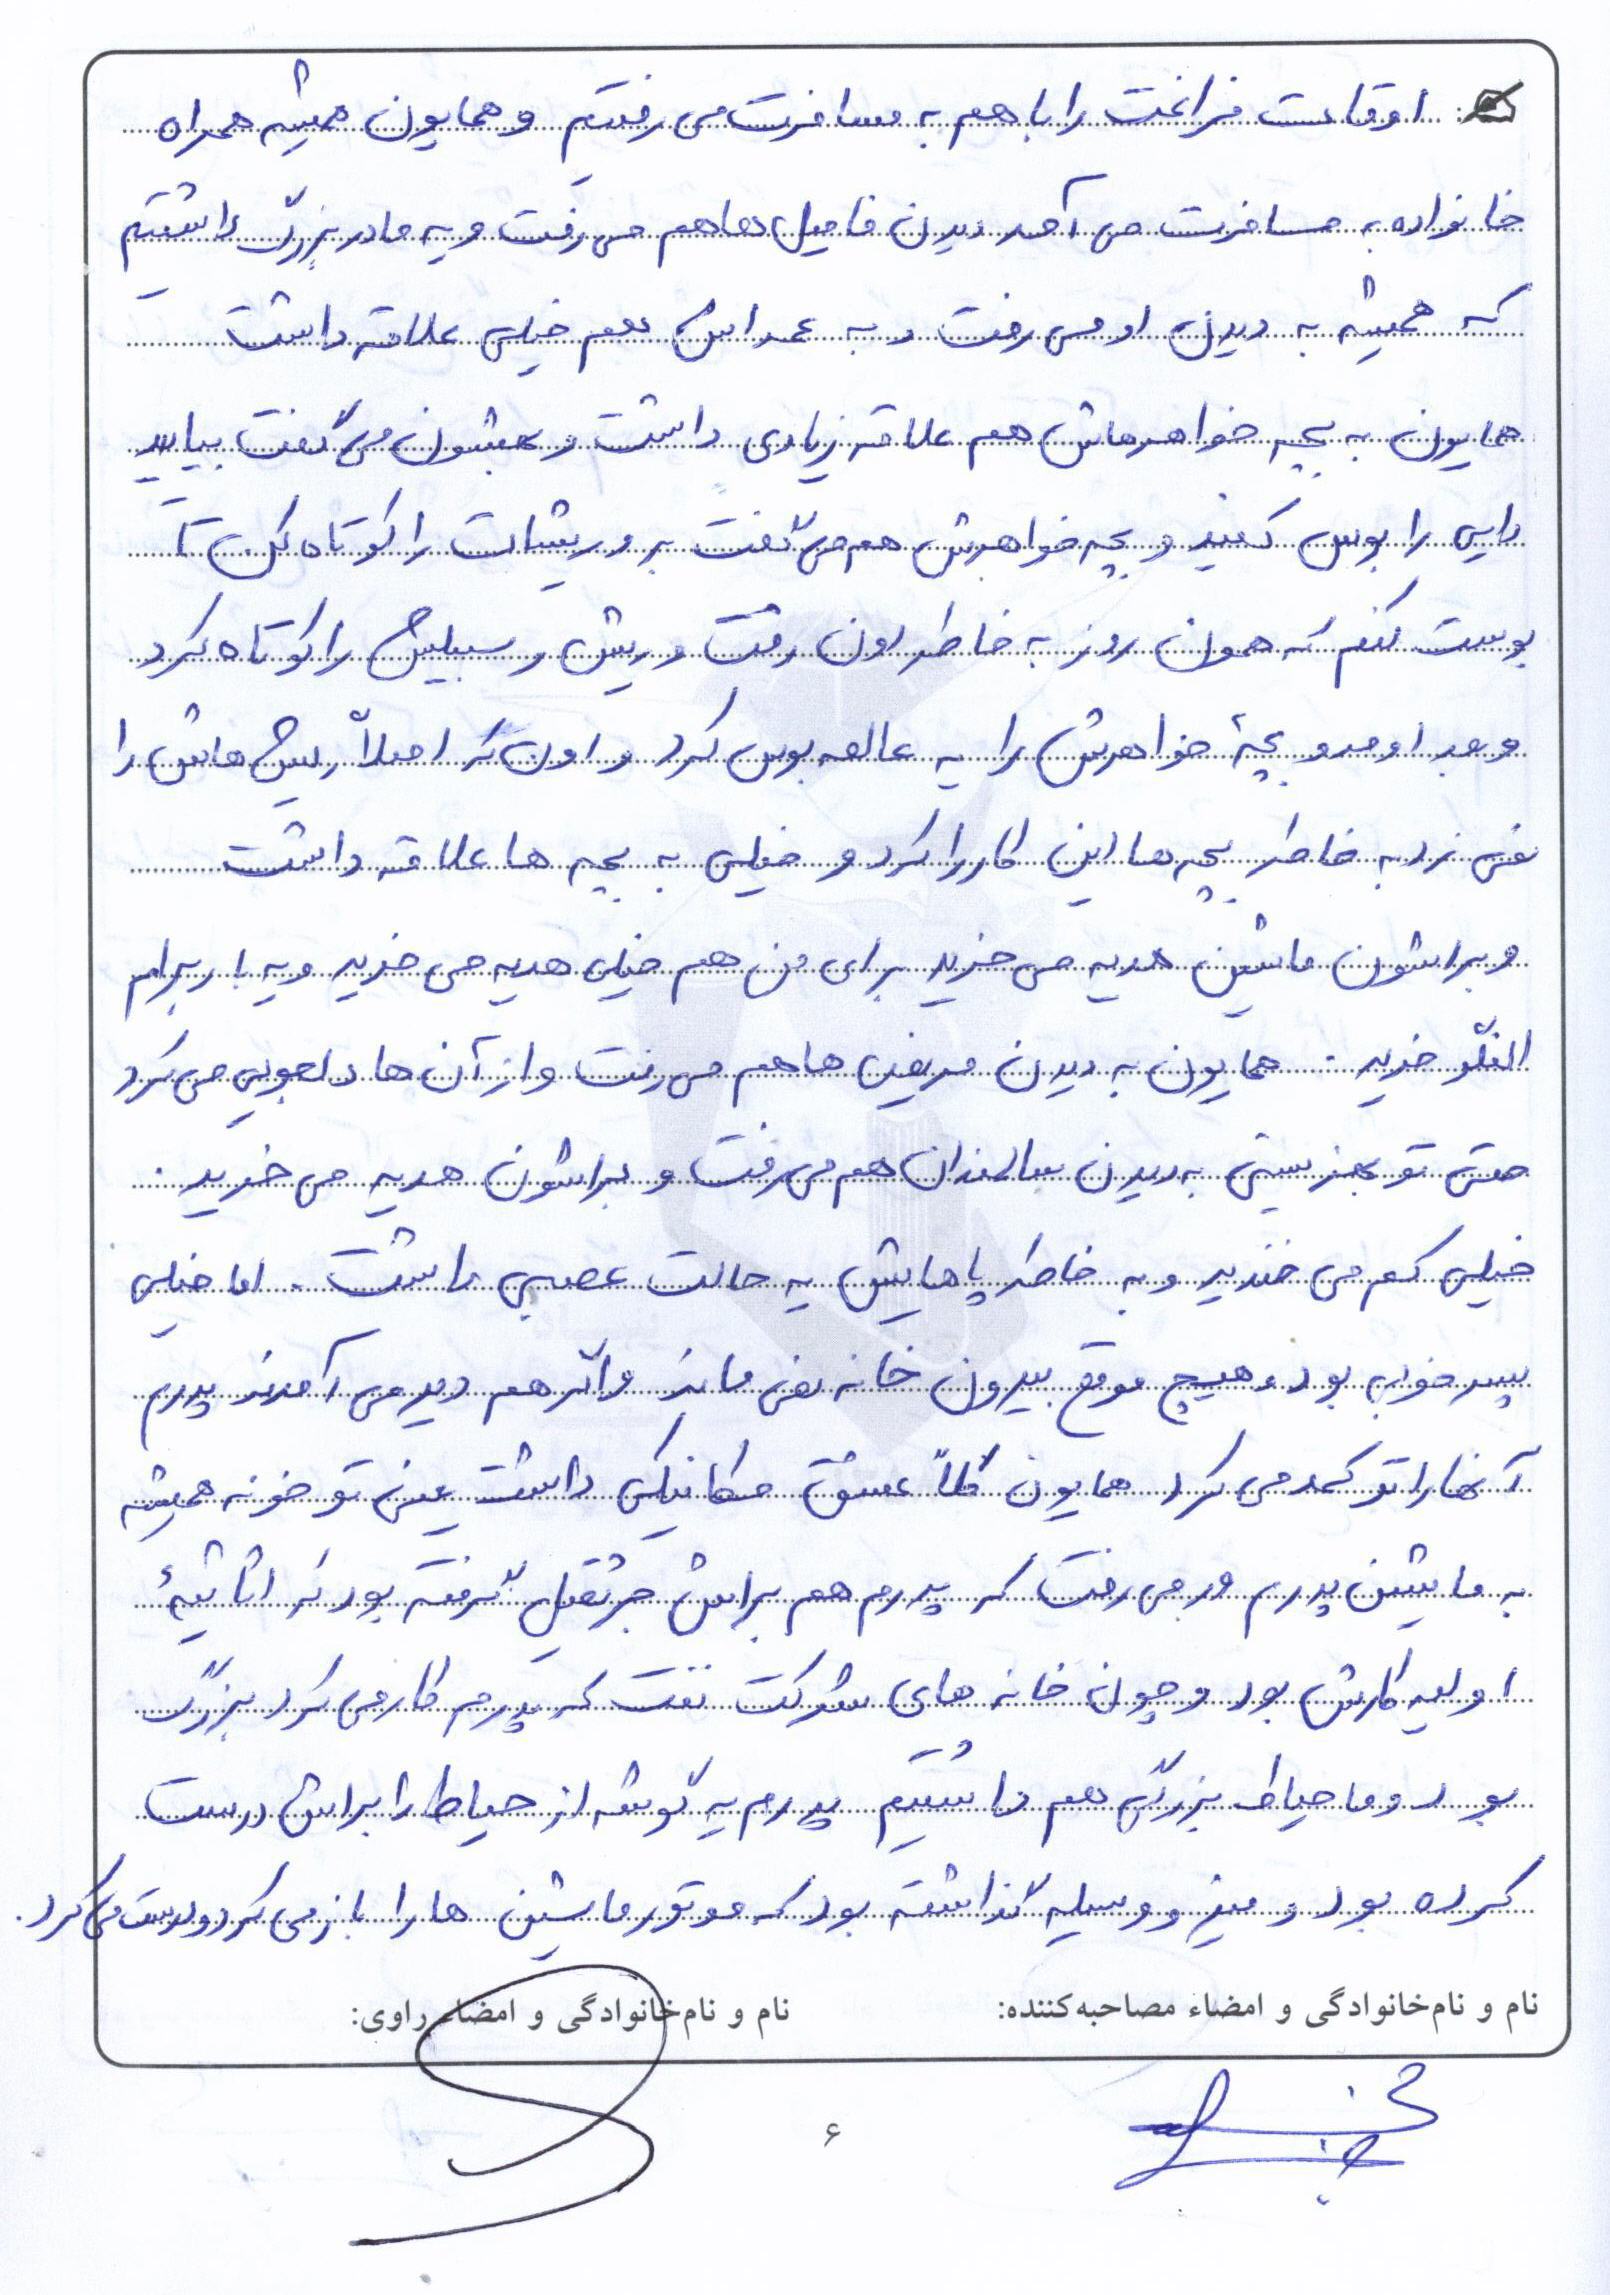 اوقات فراغت را با هم به مسافرت می رفتیم و همایون همیشه همراه
خانواده به مسافرت می آمد دیدن فامیل ها هم می رفت و یه مادربزرگ داشتیم
که همیشه به دیدن او می رفت و به عمه اش هم خیلی علاقه داشت
همایون به بچه خواهرهاش هم علاقه زیادی داشت و بهشون می گفت بیایید
دایی را بوس کنید و بچه خواهرش هم می گفت برو ریشات را کوتاه کن تا
بوست کنم که همون روز به خاطر اون رفت و ریش و سبیلش را کوتاه کرد
و بعد اومد و بچۀ خواهرش را یه عالمه بوس کرد و اون که اصلاً ریش هاش را
نمی زد به خاطر بچه ها این کار را کرد و خیلی به بچه ها علاقه داشت
و براشون ماشین هدیه می خرید برای من هم خیلی هدیه می خرید و یه بار برام
النگو خرید. همایون به دیدن مریض ها هم می رفت و از آن ها دلجویی می کرد
حتی تو بهزیستی به دیدن سالمندان هم می رفت و براشون هدیه می خرید.
خیلی کم می خندید و به خاطر پاهایش یه حالت عصبی داشت. اما خیلی
پسر خوبی بود و هیچ موقع بیرون خانه نمی ماند و اگر هم دیر می آمدند پدرم
آنها را تو کمد می کرد همایون کلاً عشق مکانیکی داشت یعنی تو خونه همیشه
به ماشین پدرم ور می رفت که پدرم هم براش جرثقیل گرفته بود که اثاثیۀ
اولیه کارش بود و چون خانه های شرکت نفت که پدرم کار می کرد بزرگ
بود و ما حیاط بزرگی هم داشتیم پدرم یه گوشه از حیاط را براش درست
کرده بود و میز و وسیله گذاشته بود که موتور ماشین ها را باز می کرد و درست می کرد.
نام و نام‌خانوادگی و امضاء مصاحبه‌کننده: نام و نام‌خانوادگی و امضاء راوی:
۶